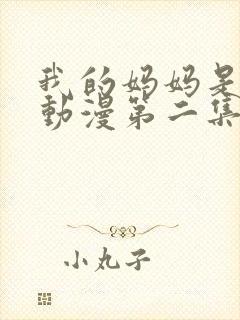 我的妈妈是
動漫第二集
小丸子